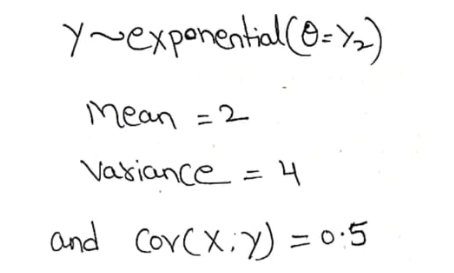 Y~exponential(θ=1/2)
Mean = 2
Variance = 4
and Cov(X,Y) = 0.5